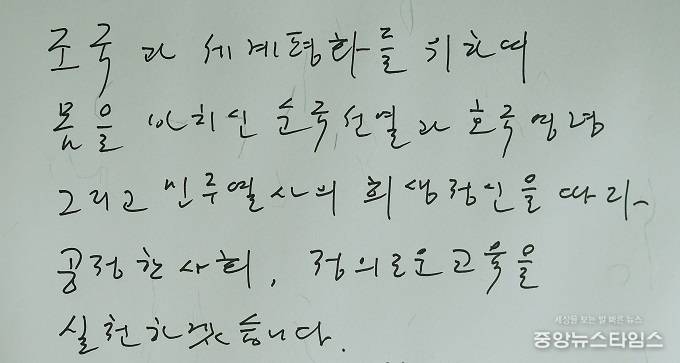 조국과 세계평화를 위하여
몸을 바치신 순국선열과 호국영령
그리고 민주열사의 희생정신을 따라
공정한 사회, 정의로운 교육을
실천하겠습니다.
세상을 보는 발 빠른 뉴스
중앙뉴스타임스